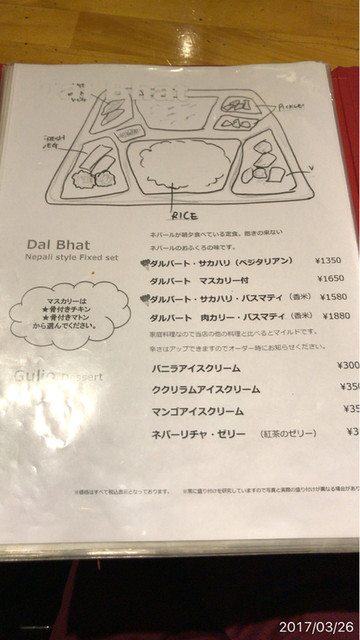 Pickle
RICE
Dal Bhat
Nepali style Fixed set
ネパールが朝夕食べている定食。飽きの来ない
ネパールのおふくろの味です。
ダルバート・サカハリ（ベジタリアン） ¥1350
ダルバート マスカリー付 ¥1650
ダルバート・サカハリ・バスマティ（香米） ¥1580
ダルバート 肉カリー・バスマティ（香米） ¥1880
家庭料理なので当店の他の料理と比べるとマイルドです。
辛さはアップできますのでオーダー時にお知らせください。
マスカリーは
★骨付きチキン
★骨付きマトン
から選んでください。
Gulio Dessert
バニラアイスクリーム ¥300
ククリラムアイスクリーム ¥350
マンゴアイスクリーム ¥35
ネパーリチャ・ゼリー （紅茶のゼリー） ¥3
※価格はすべて税込表示となっております。 ※常に盛り付けを研究していますので写真と実際の盛り付けが異なる場合があり
2017/03/26